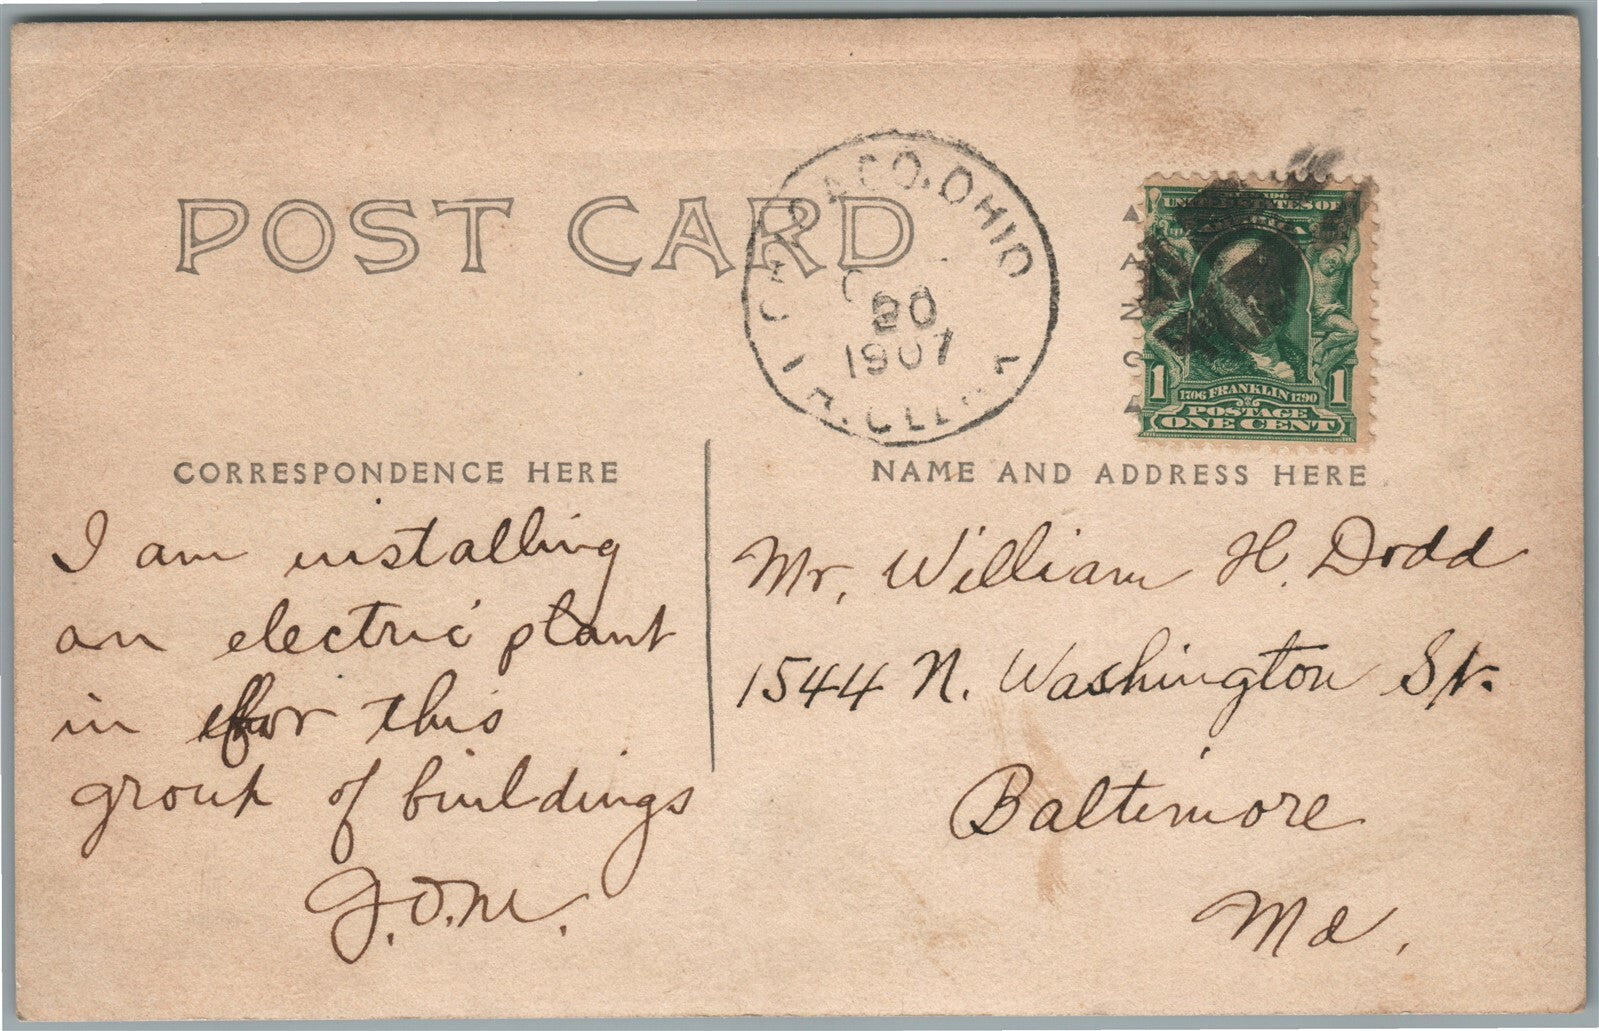 POST CARD
CO, OHIO
20
1907
UNITED STATES OF
AMERICA
1 1
1706 FRANKLIN 1790
POSTAGE
ONE CENT
CORRESPONDENCE HERE
I am installing
an electric plant
in for this
group of buildings
J.O.M.
NAME AND ADDRESS HERE
Mr. William H. Dodd
1544 N. Washington St.
Baltimore
Md.